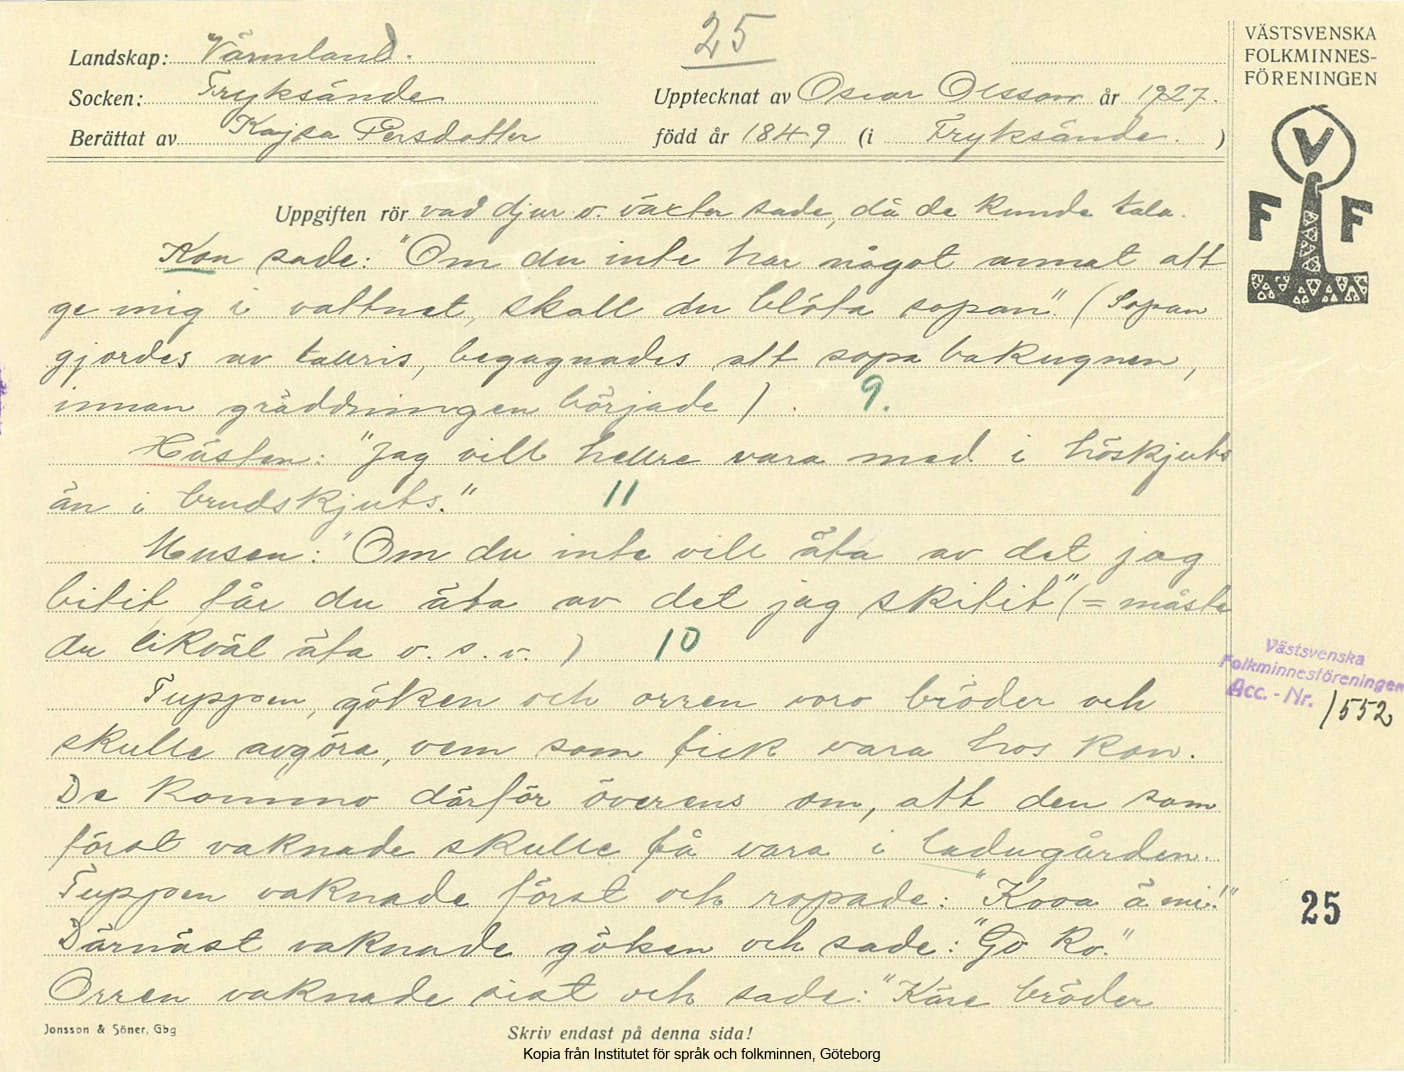 25
Landskap: Värmland.
Socken: Fryksände
Upptecknat av Oscar Olsson år 1927.
Berättat av Kajsa Persdotter
född år 1849 (i Fryksände. )
VÄSTSVENSKA
FOLKMINNES-
FÖRENINGEN
V
F F
Uppgiften rör vad djur o. växter sade, då de kunde tala.
Kon sade: "Om du inte har något annat att
ge mig i vattnet, skall du blöta sopan". (Sopan
gjordes av tallris, begagnades att sopa bakugnen,
innan gräddningen började). 9.
Hästen: "Jag vill hellre vara med i höskjuts
än i brudskjuts." 11
Musen: "Om du inte vill äta av det jag
bitit får du äta av det jag skitit" (= måste
du likväl äta o. s. v. ) 10
Tuppen, göken och orren voro bröder och
skulle avgöra, vem som fick vara hos kon.
De kommo därför överens om, att den som
först vaknade skulle få vara i ladugården.
Tuppen vaknade först och ropade: "Kooa ä mi!"
Därnäst vaknade göken och sade: "Go ko."
Orren vaknade sist och sade: "Käre bröder
Västsvenska
Folkminnesföreningen
Acc. - Nr. 1552
25
Jonsson & Söner, Gbg
Skriv endast på denna sida!
Kopia från Institutet för språk och folkminnen, Göteborg